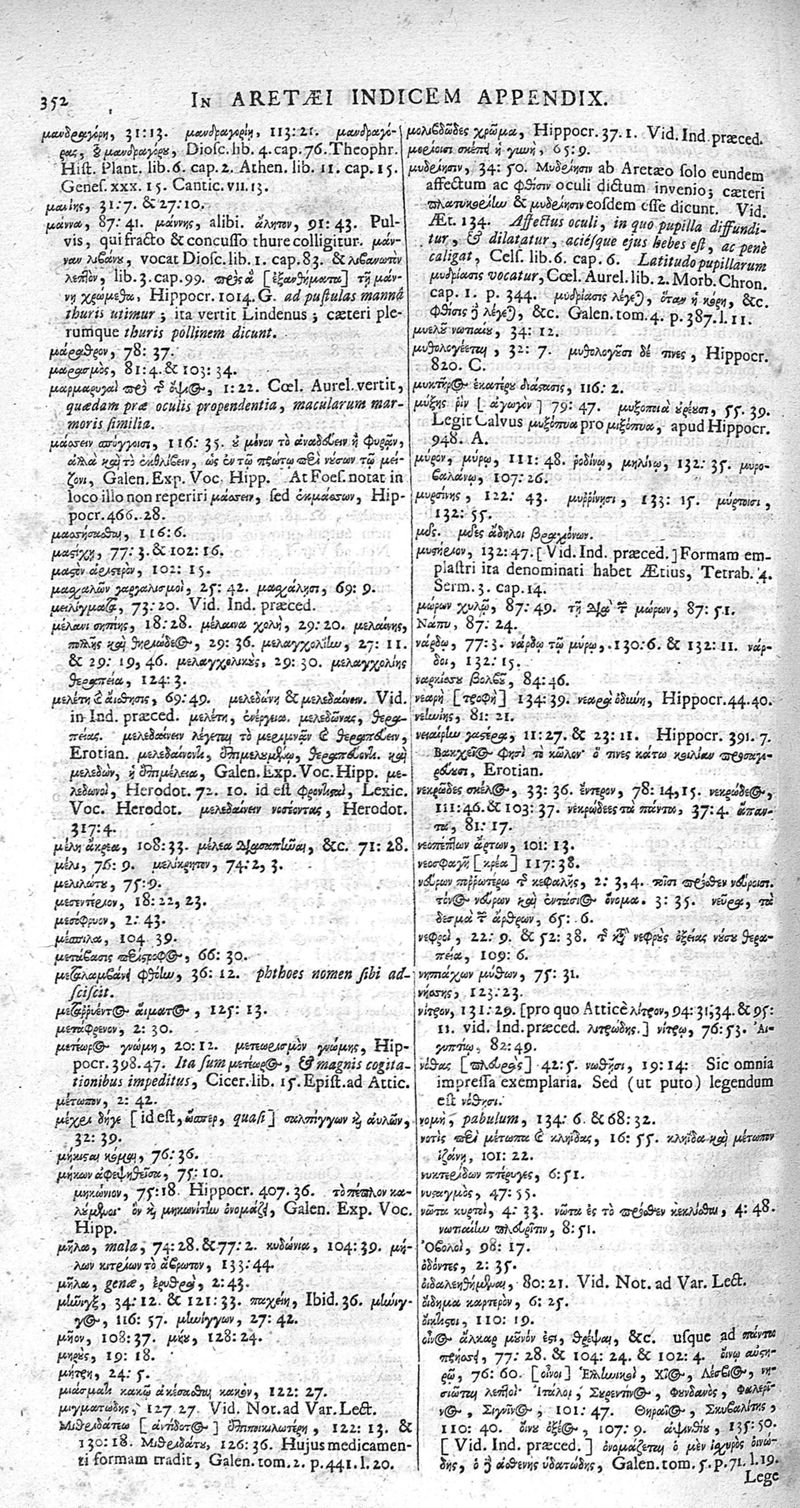 352 In ARETÆI INDICEM APPENDIX.
μανδραγόρη, 31:13. μανδραγορίη, 113:21. μανδραγό-
ρας, ὁ μανδραγόρου, Diosc. lib. 4. cap. 76. Theophr.
Hist. Plant. lib. 6. cap. 2. Athen. lib. 11. cap. 15.
Genes. xxx. 15. Cantic. vii. 13.
μανίης, 31:7. & 27:10.
μάννα, 87:41. μάννης, alibi. ἄλητον, 91:43. Pul-
vis, qui fracto & concusso thure colligitur. μάν-
ναν λιβάνου, vocat Diosc. lib. 1. cap. 83. & λιβανωτὸν
λεπτὸν, lib. 3. cap. 99. πρὸς ἃ [ἐξανθήματα] τῇ μάν-
νῃ χρώμεθα, Hippocr. 1014. G. ad pustulas mannâ
thuris utimur; ita vertit Lindenus; cæteri ple-
rumque thuris pollinem dicunt.
μάραθρον, 78:37.
μαρασμὸς, 81:4. & 103:34.
μαρμαρυγαὶ πρὸ τ ὄψιος, 1:22. Cœl. Aurel. vertit,
quædam præ oculis propendentia, macularum mar-
moris similia.
μάσσειν σπόγγοισι, 116:35. οὐ μόνον τὸ ἀναδεύειν ἢ φυρᾷν,
ἀλλὰ καὶ τὸ ἐκθλίβειν, ὡς ἐν τῷ πρώτῳ περὶ νούσων τῷ μεί-
ζονι, Galen. Exp. Voc. Hipp. At Foes. notat in
loco illo non reperiri μάσσειν, sed ἐκμάσσειν, Hip-
pocr. 466. 28.
116:6.
μαστίχη, 77:3. & 102:16.
μαζὸν ἀριστερὸν, 102:15.
μασχαλῶν γαργαλισμοὶ, 25:42. μασχάλῃσι, 69:9.
73:20. Vid. Ind. præced.
μέλανι σηπίης, 18:28. μέλαινα χολὴ, 29:20. μελαίνης,
29:36. μελαγχολίην, 27:11.
& 29:19, 46. μελαγχολικοὺς, 29:30. μελαγχολίης
θεραπεία, 124:3.
μελέτη ἐ αἴσθησις, 69:49. μελεδώνη & μελεδαίνειν. Vid.
in Ind. præced. μελέτη, ἐνέργεια. μελεδῶνας, θερα-
πείας. μελεδαίνειν λέγεται τὸ μεριμνᾷν ἐ θεραπεύειν,
Erotian. μελεδαίνονται, ἐπιμελουμένῳ, θεραπεύονται. καὶ
μελεδὼν, ἡ ἐπιμέλεια, Galen. Exp. Voc. Hipp. με-
λεδωνοὶ, Herodot. 72. 10. id est φροντισταὶ, Lexic.
Voc. Herodot. μελεδαίνειν νοσέοντας, Herodot.
317:4.
μέλη ἄκρεα, 108:33. μέλεα διασπᾶται, &c. 71:28.
μέλι, 76:9. μελίκρητον, 74:2, 3.
μελιλώτου, 75:9.
μεσεντέριον, 18:22, 23.
μεσόφρυον, 2:43.
μέσπιλα, 104 39.
μετάβασις περίτροφος, 66:30.
μεταλαμβάνει φθίσιν, 36:12. phthoes nomen sibi ad-
sciscit.
μεταῤῥυέντος αἵματος, 125:13.
μετάφρενον, 2:30.
μετέωρος γνώμη, 20:12. μετεωρισμὸν γνώμης, Hip-
pocr. 398. 47. Ita sum μετέωρος, & magnis cogita-
tionibus impeditus, Cicer. lib. 15. Epist. ad Attic.
μέτωπον, 2:42.
μέχρι δήγε [id est, ὥσπερ, quasi] σαλπίγγων ἢ αὐλῶν,
32:39.
μήκισται κόμαι, 76:36.
μήκων ἀφεψηθεῖσα, 75:10.
μηκώνιον, 75:18 Hippocr. 407. 36. τὸ πέπλον κα-
λούμενον ὃν ἢ μηκωνίτην ὀνομάζει, Galen. Exp. Voc.
Hipp.
μῆλα, mala, 74:28. & 77:2. κυδώνια, 104:39. μή-
λων κιτρίων τὸ ἄβρωτον, 133:44.
μῆλα, genæ, ἐρυθρὰ, 2:43.
μῆνιγξ, 34:12. & 121:33. παχείη, Ibid. 36. μήνιγ-
γος, 116:57. μηνίγγων, 27:42.
μῆον, 108:37. μήου, 128:24.
μηροὺς, 19:18.
μήτρη, 24:5.
μιάσματι κακῷ ἀκέσασθαι κακὸν, 122:27.
μιγματώδης, 127 27. Vid. Not. ad Var. Lect.
Μιθριδάτεω [ἀντίδοτος] ἐπιποικιλωτέρη, 122:13. &
130:18. Μιθριδάτου, 126:36. Hujus medicamen-
ti formam tradit, Galen. tom. 2. p. 441. l. 20.
μολιβδῶδες χρῶμα, Hippocr. 37. 1. Vid. Ind. præced.
μορίοισι σκέπη ἡ γυνὴ, 65:9.
μυδρίησιν, 34:50. Μυδρίησιν ab Aretæo solo eundem
affectum ac φθίσιν oculi dictum invenio; cæteri
πλατυκορίαν & μυδρίησιν eosdem esse dicunt. Vid.
Æt. 134. Affectus oculi, in quo pupilla diffundi-
tur, & dilatatur, aciésque ejus hebes est, ac penè
caligat, Cels. lib. 6. cap. 6. Latitudo pupillarum
mydriasis vocatur, Cœl. Aurel. lib. 2. Morb. Chron.
cap. 1. p. 344. μυδρίασις λέγεται, ὅταν ἡ κόρη, &c.
φθίσις ἢ λέγεται, &c. Galen. tom. 4. p. 387. l. 11.
μυελοῦ νωτιαίου, 34:12.
μυθολογέεται, 32:7. μυθολογοῦσι δέ τινες, Hippocr.
820. C.
μυκτῆρος ἑκατέρου διάστασις, 116:2.
μύξης ῥὶν [ἀγωγὸν] 79:47. μυξοποιὰ οὐρέουσι, 55. 39.
Legit Calvus μυξόπυα pro μιξόπυα, apud Hippocr.
948. A.
μύρον, μύρῳ, 111:48. ῥοδίνῳ, μηλίνῳ, 132:35. μυρο-
βαλάνῳ, 107:26.
μυρσίνης, 122:43. μυῤῥίνῃσι, 133:15. μύρτοισι,
132:55.
μῦς. μύες ἄδηλοι βραχιόνων.
μυστήριον, 132:47. [Vid. Ind. præced.] Formam em-
plastri ita denominati habet Ætius, Tetrab. 4.
Serm. 3. cap. 14.
μώρων χυλῷ, 87:49. τῇ διὰ τ μώρων, 87:51.
Νάπυ, 87:24.
νάρδῳ, 77:3. νάρδῳ τῷ μύρῳ, 130:6. & 132:11. νάρ-
δοι, 132:15.
ναρκίσσου βολβοῦ, 84:46.
νεαρὴ [τροφὴ] 134:39. νεαρὰ ὀδύνη, Hippocr. 44. 40.
81:21.
νειαίρην γαστέρα, 11:27. & 23:11. Hippocr. 391. 7.
Βακχεῖος φησὶ τὸ κῶλον· ὅ τινες κάτω κοιλίαν προσαγο-
ρεύουσι, Erotian.
νεκρῶδες σκέλος, 33:36. ἔντερον, 78:14, 15. νεκρώδεος,
111:46. & 103:37. νεκρώδεες τὰ πάντα, 37:4. ἅπαν-
τα, 81:17.
νεοπέπτων ἄρτων, 101:13.
νεοσφαγῆ [κρέα] 117:38.
νεύρων ποῤῥωτέρω τ κεφαλῆς, 2:3, 4. τοῖσι πρόσθεν νεύροισι.
τόνος νεύρων καὶ ἐντάσιος ὄνομα. 3:35. νεῦρα, τὰ
δεσμὰ τ ἄρθρων, 65:6.
νεφροὶ, 22:9. & 52:38. τ κατὰ νεφροὺς ὀξείας νούσου θερα-
πεία, 109:6.
νηπιάχων μύθων, 75:31.
νήσσης, 123:23.
νίτρον, 131:29. [pro quo Atticè λίτρον, 94:31; 34. & 95:
11. vid. Ind. præced. λιτρώδης.] νίτρῳ, 76:53. Αἰ-
γυπτίῳ, 82:49.
νόθας [πλευρὰς] 42:5. νωθῇσι, 19:14: Sic omnia
impressa exemplaria. Sed (ut puto) legendum
est νόθῃσι.
νομὴ, pabulum, 134:6. & 68:32.
νοτὶς περὶ μέτωπα ἐ κληῖδας, 16:55. κληῖδα καὶ μέτωπον
ἰζάνῃ, 101:22.
νυκτερίδων πτέρυγες, 6:51.
νυσταγμὸς, 47:55.
νῶτα κυρτοὶ, 4:33. νῶτα ἐς τὸ πρόσθεν κέκλασται, 4:48.
νωτιαίαν πλευρῖτιν, 8:51.
Ὀβολοὶ, 98:17.
ὀδόντες, 2:35.
80:21. Vid. Not. ad Var. Lect.
οἴδημα καρτερὸν, 6:25.
110:19.
οἶνος ἄλκαρ μοῦνόν ἐστι, θρέψαι, &c. usque ad πάντα
77:28. & 104:24. & 102:4. οἴνῳ αὐστη-
ρῷ, 76:60. [οἶνοι] Χῖος, Λέσβιος, νη-
σιῶται λεπτοί· Ἰταλοὶ, Συρεντῖνος, Φυνδανὸς, Φαλερῖ-
νος, Σιγνῖνος, 101:47. Θηραῖος, Σκυβαλίτης,
110:40. οἴνου ὀξέος, 107:9. ἀψινθίου, 135:50.
[Vid. Ind. præced.] ὀνομάζεται ὁ μὲν ἰσχυρὸς οἰνώ-
δης, ὁ ἢ ἀσθενὴς ὑδατώδης, Galen. tom. 5. p. 71. l. 19.
Lege